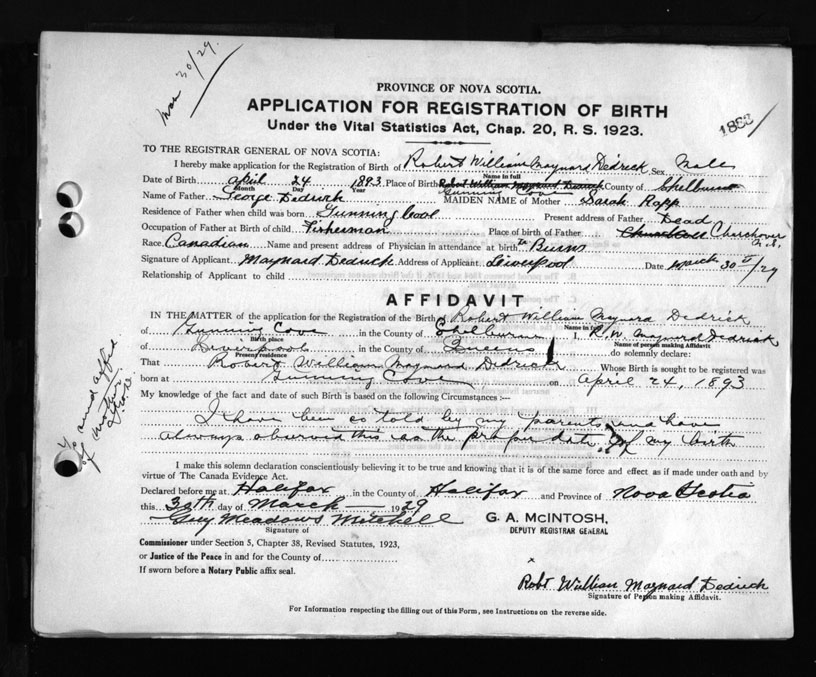 Mar 30/29.
PROVINCE OF NOVA SCOTIA.
APPLICATION FOR REGISTRATION OF BIRTH
Under the Vital Statistics Act, Chap. 20, R. S. 1923.
TO THE REGISTRAR GENERAL OF NOVA SCOTIA:
I hereby make application for the Registration of Birth of Robert William Maynard Dedrick Sex Male
Name in full
Date of Birth April 24 1893 Place of Birth Robert William Maynard Dedrick Gunning Cove County of Shelburne
Month Day Year
Name of Father George Dedrick MAIDEN NAME of Mother Sarah Rapp
Residence of Father when child was born Gunning Cove Present address of Father Dead
Occupation of Father at Birth of child Fisherman Place of birth of Father Churchover N.S.
Race Canadian Name and present address of Physician in attendance at birth Dr Burns
Signature of Applicant Maynard Dedrick Address of Applicant Liverpool Date March 30th/29
Relationship of Applicant to child
AFFIDAVIT
IN THE MATTER of the application for the Registration of the Birth of Robert William Maynard Dedrick
Name in full
of Gunning Cove in the County of Shelburne I, R. W. Maynard Dedrick
Birth place Name of person making Affidavit
of Liverpool in the County of Queens do solemnly declare:
Present residence
That Robert William Maynard Dedrick Whose Birth is sought to be registered was
born at Gunning Cove on April 24, 1893
My knowledge of the fact and date of such Birth is based on the following Circumstances:—
I have been so told by my parents and have
always observed this as the proper date of my birth
I make this solemn declaration conscientiously believing it to be true and knowing that it is of the same force and effect as if made under oath and by
virtue of The Canada Evidence Act.
Declared before me at Halifax in the County of Halifax and Province of Nova Scotia
this 30th day of March 1929
Guy Meadows Mitchell
Signature of
G. A. McINTOSH,
DEPUTY REGISTRAR GENERAL
Commissioner under Section 5, Chapter 38, Revised Statutes, 1923,
or Justice of the Peace in and for the County of
If sworn before a Notary Public affix seal.
x
Robt William Maynard Dedrick
Signature of Person making Affidavit.
For Information respecting the filling out of this Form, see Instructions on the reverse side.